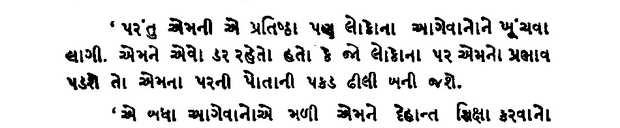 ‘પરંતુ એમની એ પ્રતિષ્ઠા પણ લોકોના આગેવાનોને ખૂંચવા
લાગી. એમને એવો ડર રહેતો હતો કે જો લોકોના પર એમનો પ્રભાવ
પડશે તો એમના પરની પોતાની પકડ ઢીલી બની જશે.
‘એ બધા આગેવાનોએ મળી એમને દેહાન્ત શિક્ષા કરવાનો